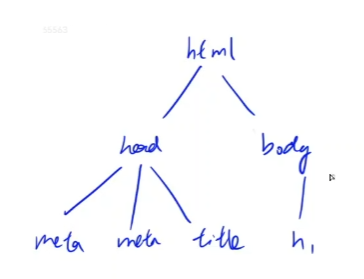 55563
html
head body
meta meta title h1